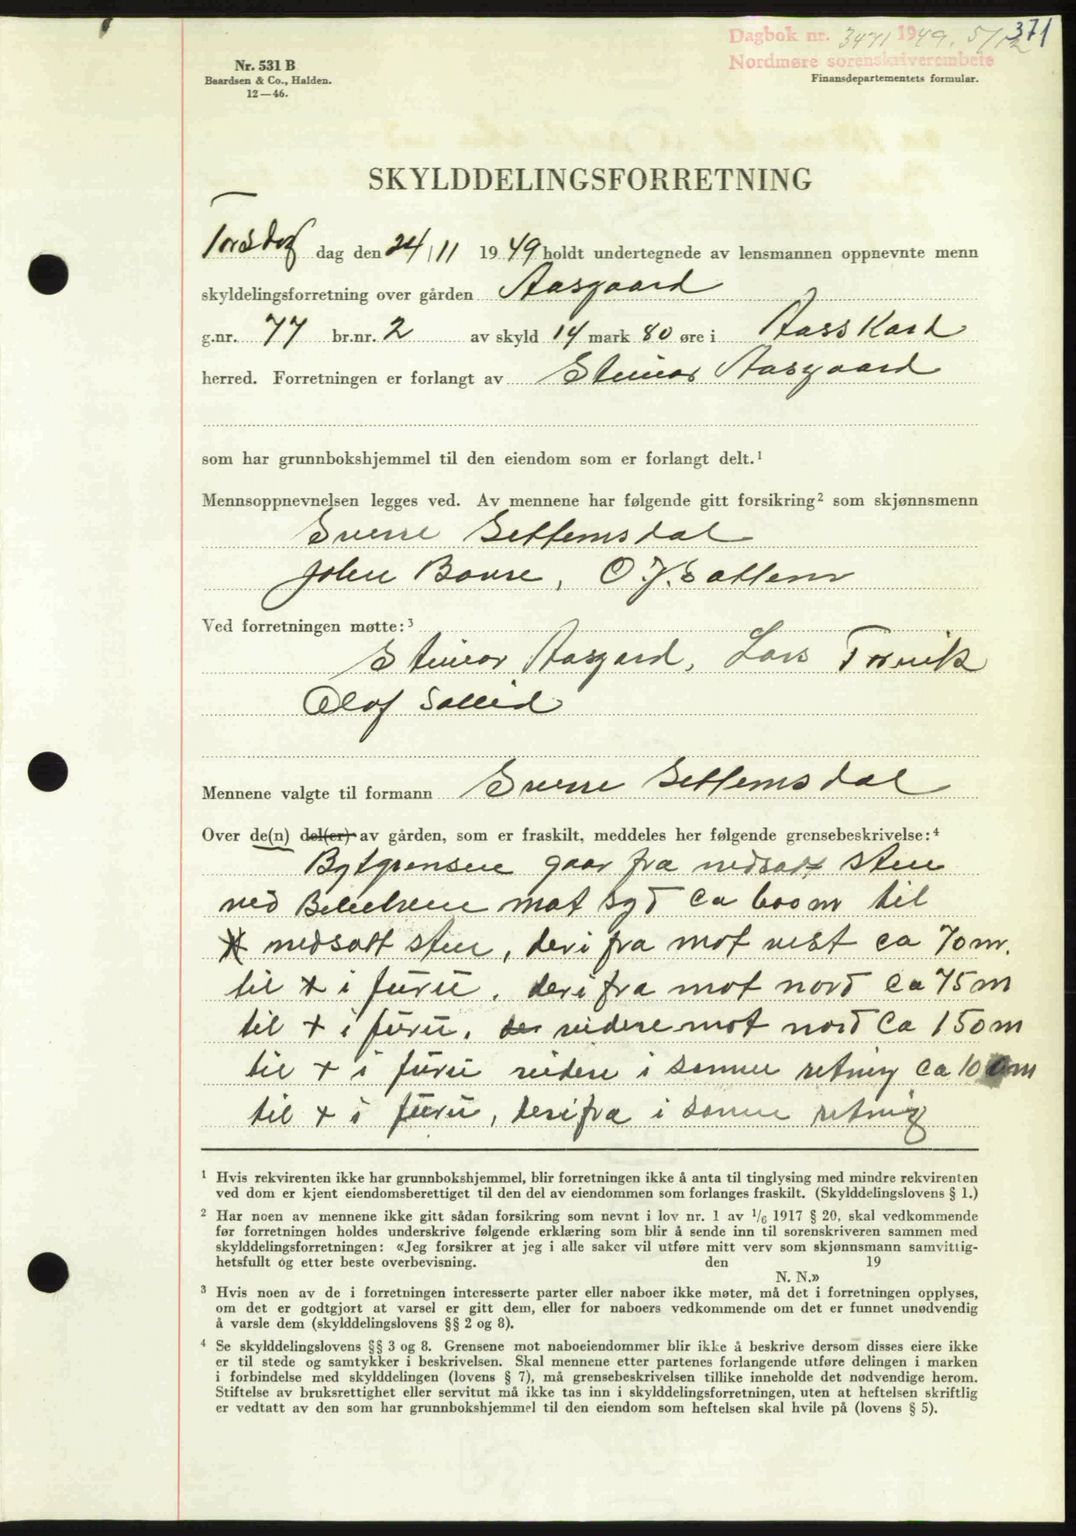 371
Dagbok nr. 3471 1949. 5/12
Nordmøre sorenskriverembete
Nr. 531 B
Baardsen & Co., Halden.
12—46.
Finansdepartementets formular.
SKYLDDELINGSFORRETNING
Torsdag dag den 24/11 1949 holdt undertegnede av lensmannen oppnevnte menn
skyldelingsforretning over gården Aasgaard
g.nr. 77 br.nr. 2 av skyld 14 mark 80 øre i Aasskard
herred. Forretningen er forlangt av Steinar Aasgaard
som har grunnbokshjemmel til den eiendom som er forlangt delt.¹
Mennsoppnevnelsen legges ved. Av mennene har følgende gitt forsikring² som skjønnsmenn
Sverre Settemsdal
John Bævre, O. J. Settem
Ved forretningen møtte:³
Steinar Aasgard, Lars
Olaf
Mennene valgte til formann Sverre Settemsdal
Over de(n) del(er) av gården, som er fraskilt, meddeles her følgende grensebeskrivelse:⁴
Bytgrensen gaar fra nedsatt sten
ved mot syd ca 600 m til
nedsatt sten, derifra mot vest ca 70 m.
til x i furu, derifra mot nord ca 75 m
til x i furu, der videre mot nord ca 150 m
til x i furu videre i samme retning ca 100 m
til x i furu, derifra i samme retning
¹ Hvis rekvirenten ikke har grunnbokshjemmel, blir forretningen ikke å anta til tinglysing med mindre rekvirenten
ved dom er kjent eiendomsberettiget til den del av eiendommen som forlanges fraskilt. (Skylddelingslovens § 1.)
² Har noen av mennene ikke gitt sådan forsikring som nevnt i lov nr. 1 av 1/6 1917 § 20, skal vedkommende
før forretningen holdes underskrive følgende erklæring som blir å sende inn til sorenskriveren sammen med
skylddelingsforretningen: «Jeg forsikrer at jeg i alle saker vil utføre mitt verv som skjønnsmann samvittig-
hetsfullt og etter beste overbevisning. den 19
N. N.»
³ Hvis noen av de i forretningen interesserte parter eller naboer ikke møter, må det i forretningen opplyses,
om det er godtgjort at varsel er gitt dem, eller for naboers vedkommende om det er funnet unødvendig
å varsle dem (skylddelingslovens §§ 2 og 8).
⁴ Se skylddelingslovens §§ 3 og 8. Grensene mot naboeiendommer blir ikke å beskrive dersom disses eiere ikke
er til stede og samtykker i beskrivelsen. Skal mennene etter partenes forlangende utføre delingen i marken
i forbindelse med skylddelingen (lovens § 7), må grensebeskrivelsen tillike inneholde det nødvendige herom.
Stiftelse av bruksrettighet eller servitut må ikke tas inn i skylddelingsforretningen, uten at heftelsen skriftlig
er vedtatt av den som har grunnbokshjemmel til den eiendom som heftelsen skal hvile på (lovens § 5).